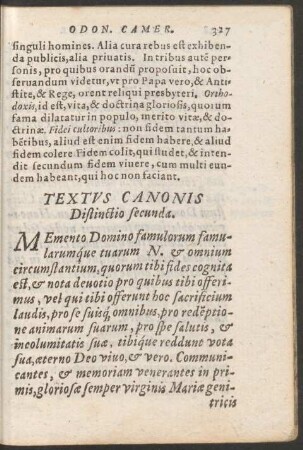 ODON. CAMER. 327
singuli homines. Alia cura rebus est exhiben
da publicis, alia priuatis. In tribus autē per
sonis, pro quibus orandū proposuit, hoc ob
seruandum videtur, vt pro Papa vero, & Anti
stite, & Rege, orent reliqui presbyteri. Ortho-
doxis, id est, vita, & doctrina gloriosis, quorum
fama dilatatur in populo, merito vitæ, & do
ctrinæ. Fidei cultoribus: non fidem tantum ha
bētibus, aliud est enim fidem habere, & aliud
fidem colere. Fidem colit, qui studet, & inten
dit secundum fidem viuere, cum multi eun-
dem habeant, qui hoc non faciant.
TEXTVS CANONIS
Distinctio secunda.
MEmento Domino famulorum famu
larumque tuarum N. & omnium
circumstantium, quorum tibi fides cognita
est, & nota deuotio pro quibus tibi offeri-
mus, vel qui tibi offerunt hoc sacrificium
laudis, pro se suisq́; omnibus, pro redēptio
ne animarum suarum, pro spe salutis, &
incolumitatis suæ. tibique reddunt vota
sua, æterno Deo viuo, & vero. Communi
cantes, & memoriam venerantes in pri-
mis, gloriosæ semper virginis Mariæ geni
tricis